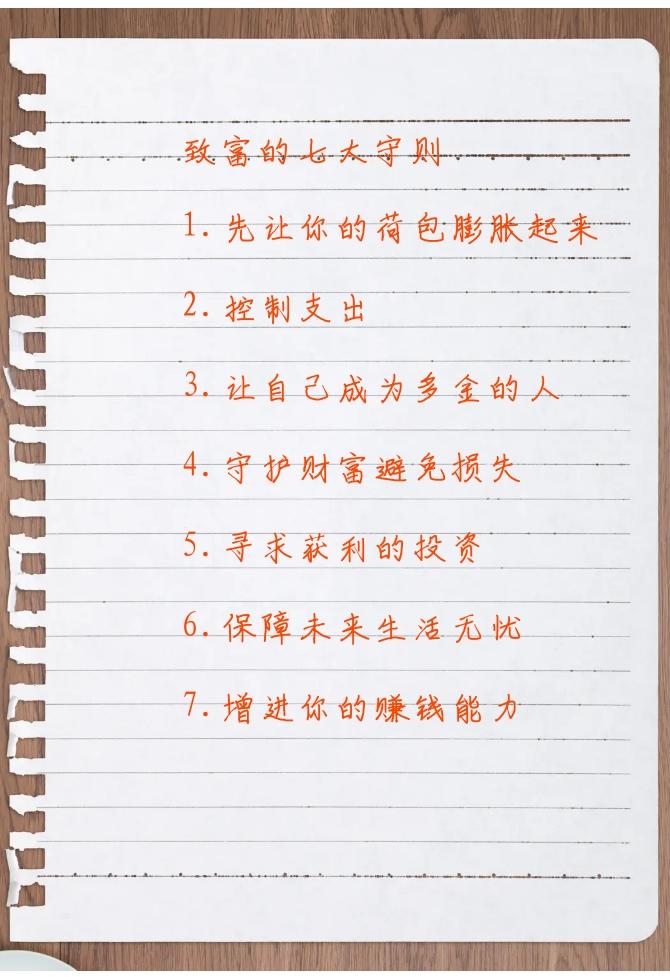 致富的七大守则
1. 先让你的荷包膨胀起来
2. 控制支出
3. 让自己成为多金的人
4. 守护财富避免损失
5. 寻求获利的投资
6. 保障未来生活无忧
7. 增进你的赚钱能力